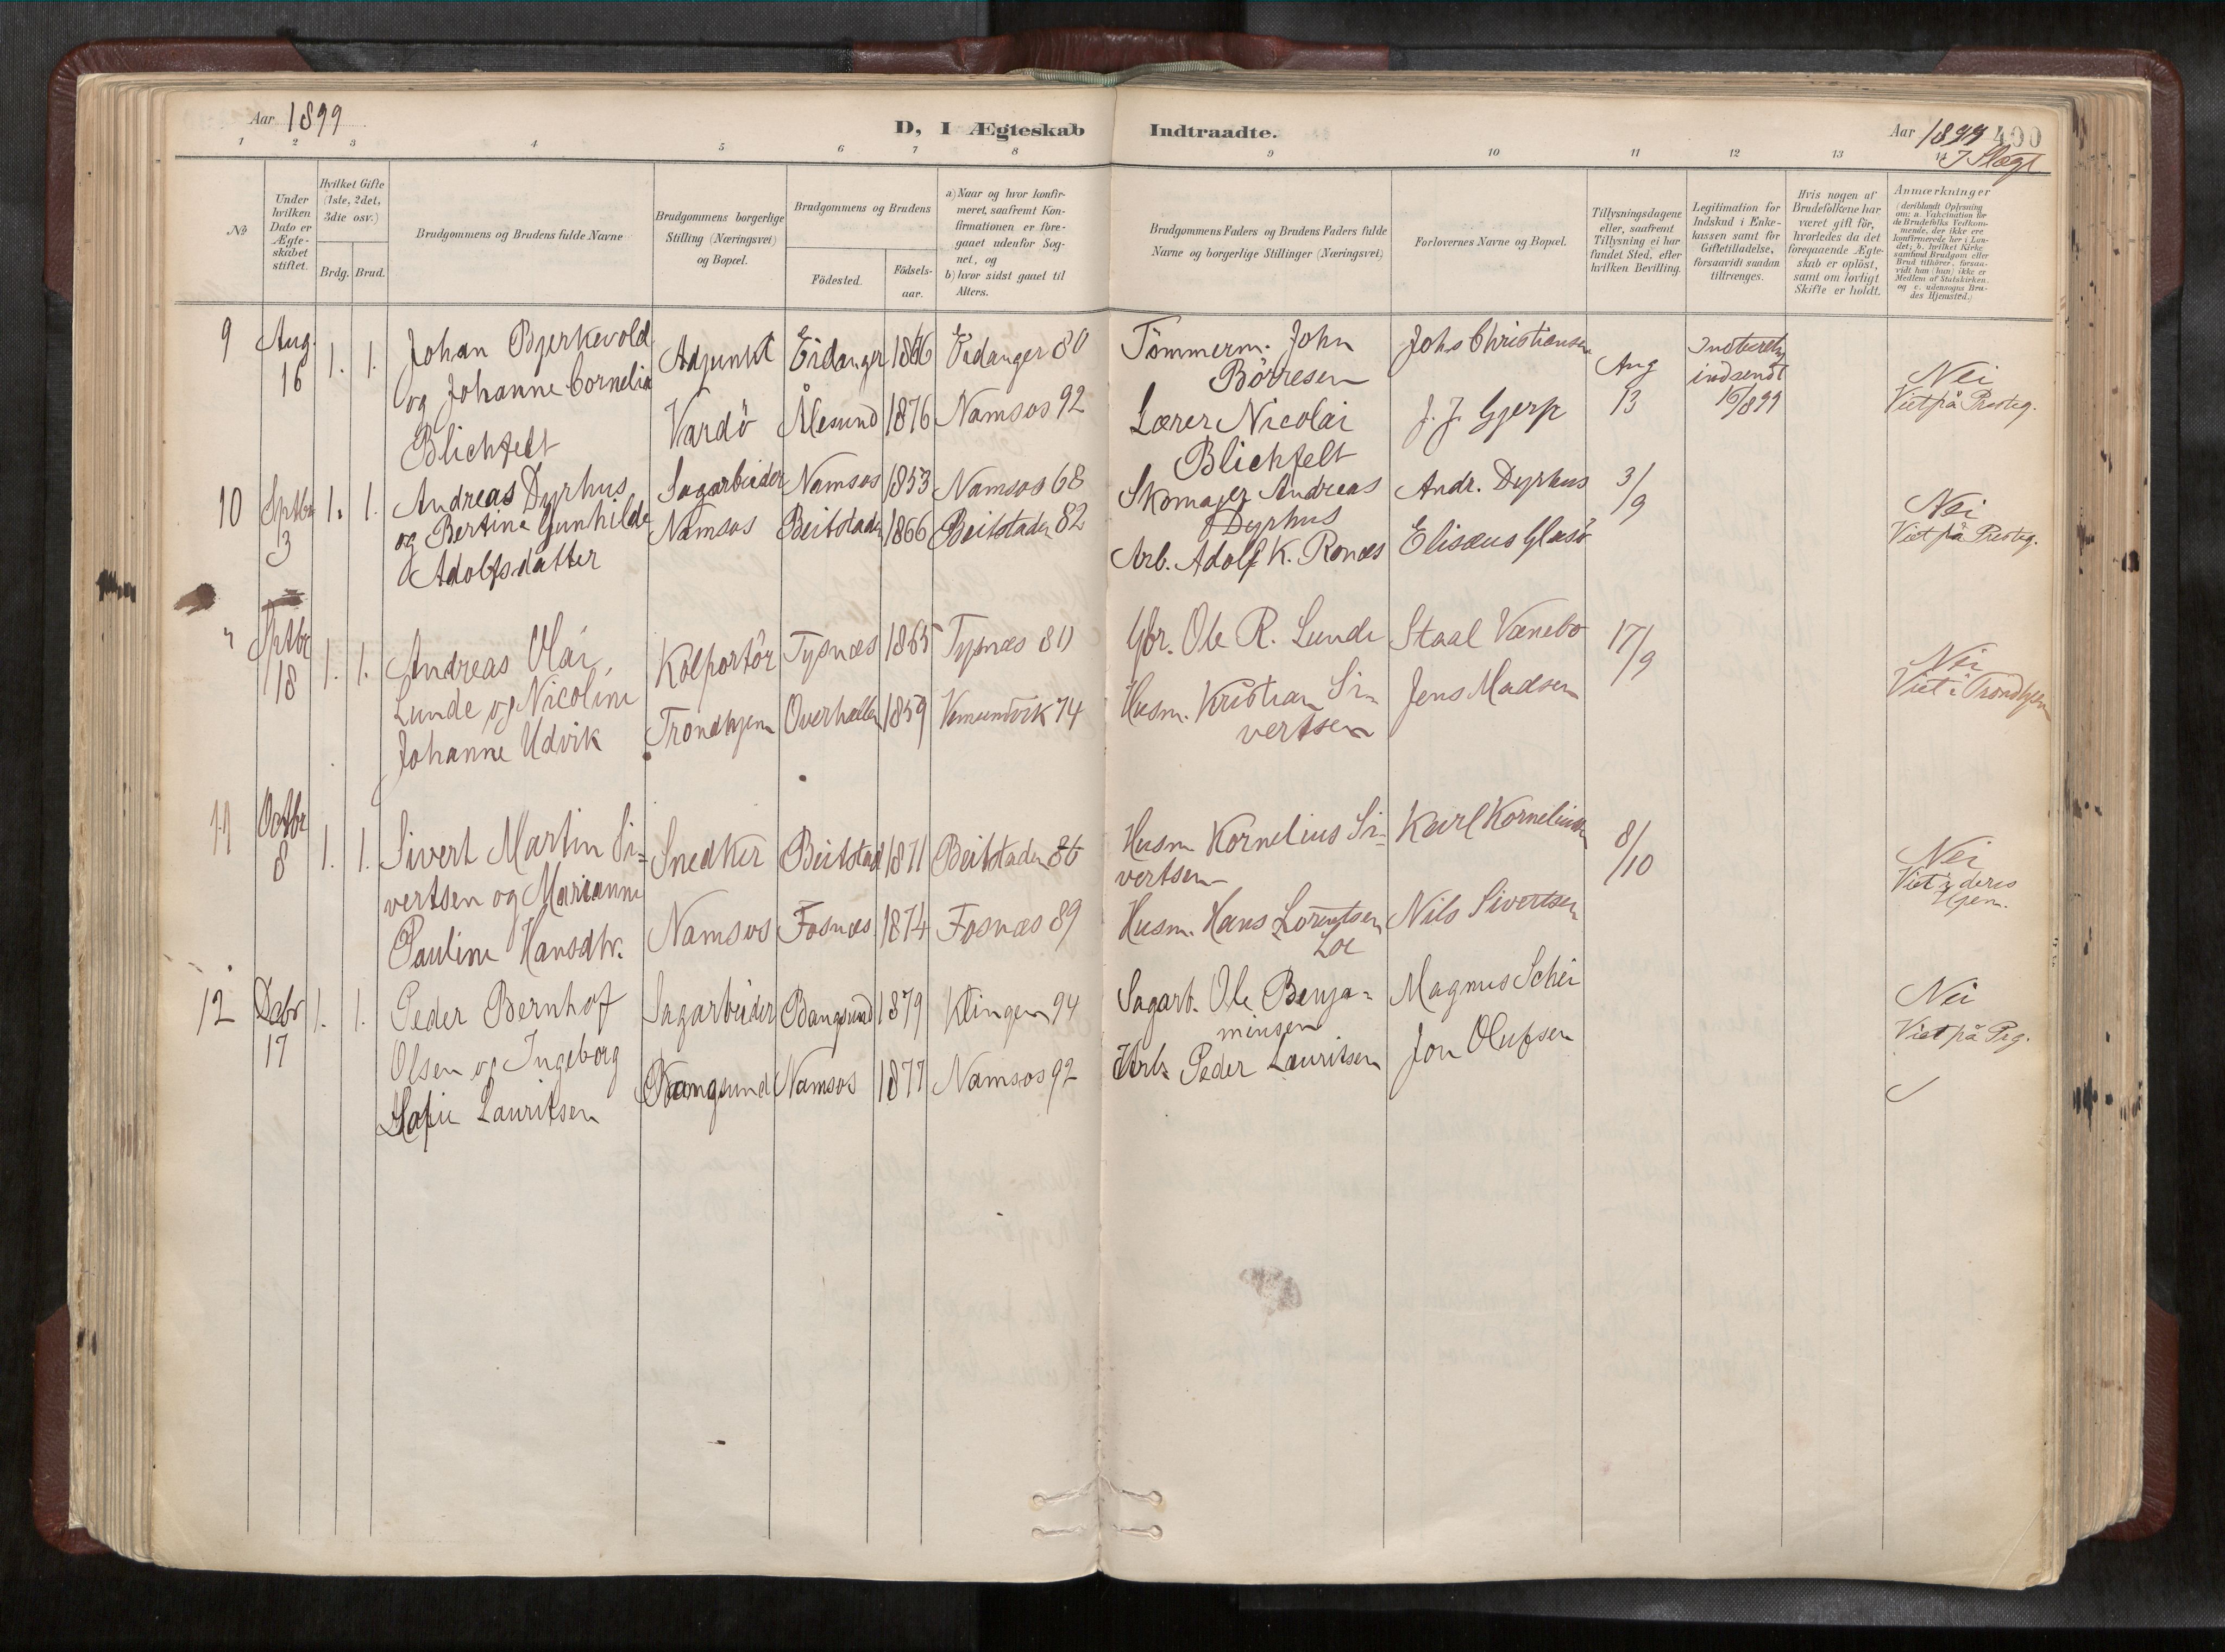 Aar 1899
D, I Ægteskab Indtraadte.
Aar 1899 400
I Slægt
1 2 3 4 5 6 7 8 9 10 11 12 13
No
Under hvilken Dato er Ægte-skabet stiftet.
Hvilket Gifte (1ste, 2det, 3die osv.)
Brdg. Brud.
Brudgommens og Brudens fulde Navne
Brudgommens borgerlige Stilling (Næringsvei) og Bopæl.
Brudgommens og Brudens
Födested.
Födsels-aar.
a) Naar og hvor konfir-meret, saafremt Kon-firmationen er fore-gaaet udenfor Sog-net, og
b) hvor sidst gaaet til Alters.
Brudgommens Faders og Brudens Faders fulde Navne og borgerlige Stillinger (Næringsvei)
Forlovernes Navne og Bopæl.
Tillysningsdagene eller, saafremt Tillysning ei har fundet Sted, efter hvilken Bevilling.
Legitimation for Indskud i Enke-kassen samt for Giftetilladelse, forsaavidt saadan tiltrænges.
Hvis nogen af Brudefolkene har været gift för, hvorledes da det foregaaende Ægte-skab er oplöst, samt om lovligt Skifte er holdt.
Anmærkninger (deriblandt Oplysning om: a. Vakcination for de Brudefolks Vedkom-mende, der ikke ere konfirmerede her i Lan-det; b. hvilket Kirke-samfund Brudgom eller Brud tilhörer, forsaa-vidt han (hun) ikke er Medlem af Statskirken. og c. udensogns Bru-des Hjemsted.)
9 Aug. 16 1. 1. Johan Bjerkevold
og Johanne Cornelia
Blichfelt
Adjunkt
Vardö
Eidanger 1866 Eidanger 80
Ålesund 1876 Namsos 92
Tömmerm. John
Börresen
Lærer Nicolai
Blichfelt
Johs Christiansen
J. J. Gjerp
Aug
13
indsendt
16/8 99
Nei
Viet på Presteg.
10 Sptbr 3 1. 1. Andreas Dyrhus
og Bertine Gunhilde
Adolfsdatter
Sagarbeider
Namsos
Namsos 1853 Namsos 68
Beitstaden 1866 Beitstaden 82
Skomager Andreas
Dyrhus
Arb. Adolf K. Ronæs
Andr. Dyrhus
Elisæus Glasö
3/9
Nei
Viet på Presteg.
" Sptbr 18 1. 1. Andreas Olai
Lunde og Nicoline
Johanne Udvik
Kolportör
Trondhjem
Tysnæs 1865 Tysnæs 80
Overhallen 1859 Vemundvik 74
Gbr. Ole R. Lunde
Husm. Kristian Si-
vertsen
Staal Vænebo
Jens Madsen
17/9
Nei
Viet i Trondhjem
11 Octbr 8 1. 1. Sivert Martin Si-
vertsen og Marianne
Pauline Hansdtr.
Snedker
Namsos
Beitstad 1871 Beitstaden 86
Fosnæs 1874 Fosnæs 89
Husm Kornelius Si-
vertsen
Husm. Hans Lorentsen
Loe
Karl Kornelius
Nils Sivertsen
8/10
Nei
Viet i deres
Hjem.
12 Debr 17 1. 1. Peder Bernhof
Olsen og Ingeborg
Sofie Lauritsen
Sagarbeider
Bangsund
Bangsund 1879 Klingen 94
Namsos 1877 Namsos 92
Sagarb. Ole Benja-
minsen
Arb. Peder Lauritsen
Magnus Schei
Jon Olufsen
Nei
Viet på Pg.